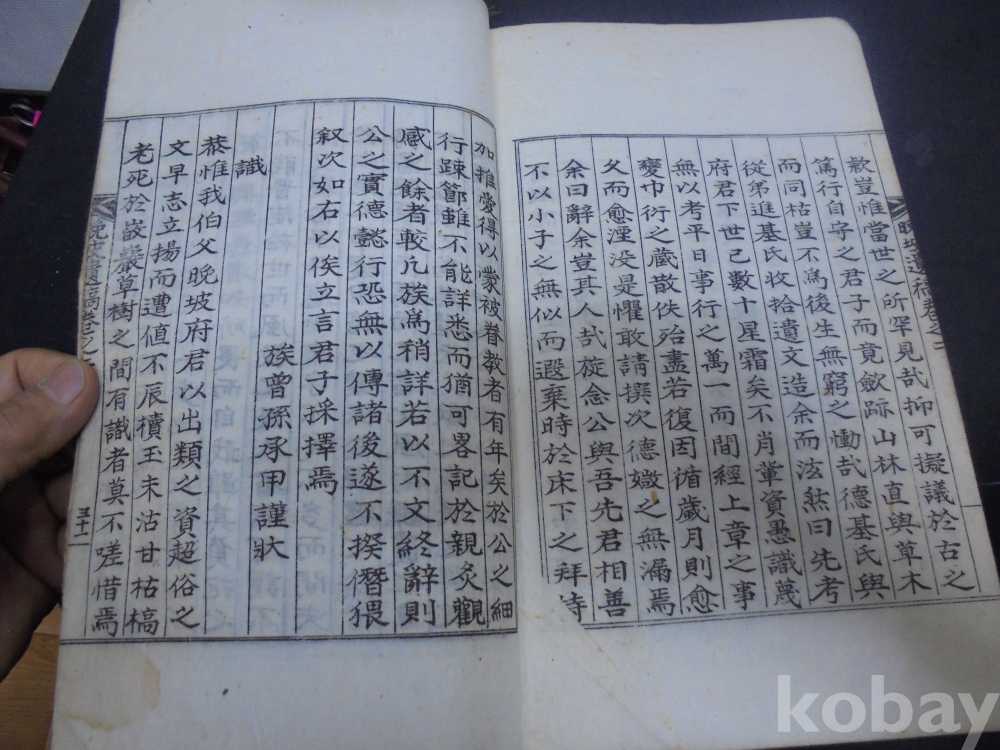 晩坡遺稿卷之二
歎豈惟當世之所罕見哉抑可擬議於古之
篤行自守之君子而竟斂跡山林直與草木
而同枯豈不爲後生無窮之慟哉德基氏與
從弟進基氏收拾遺文造余而泫然曰先考
府君下世已數十星霜矣不肖輩資愚識蔑
無以考平日事行之萬一而間經上章之事
變巾衍之藏散佚殆盡若復因循歲月則愈
久而愈湮没是懼敢請撰次德媺之無漏焉
余曰辭余豈其人哉旋念公與吾先君相善
不以小子之無似而遐棄時於床下之拜待
加推愛得以蒙被眷教者有年矣於公之細
行疎節雖不能詳悉而猶可畧記於親炙觀
感之餘者較凡族爲稍詳若以不文終辭則
公之實德懿行恐無以傳諸後遂不揆僭猥
叙次如右以俟立言君子採擇焉
族曾孫承甲謹狀
識
恭惟我伯父晩坡府君以出類之資超俗之
文早志立揚而遭値不辰櫝玉未沽甘枯槁
老死於嵌巖草樹之間有識者莫不嗟惜焉
晩坡遺稿卷之
三十一
kobay